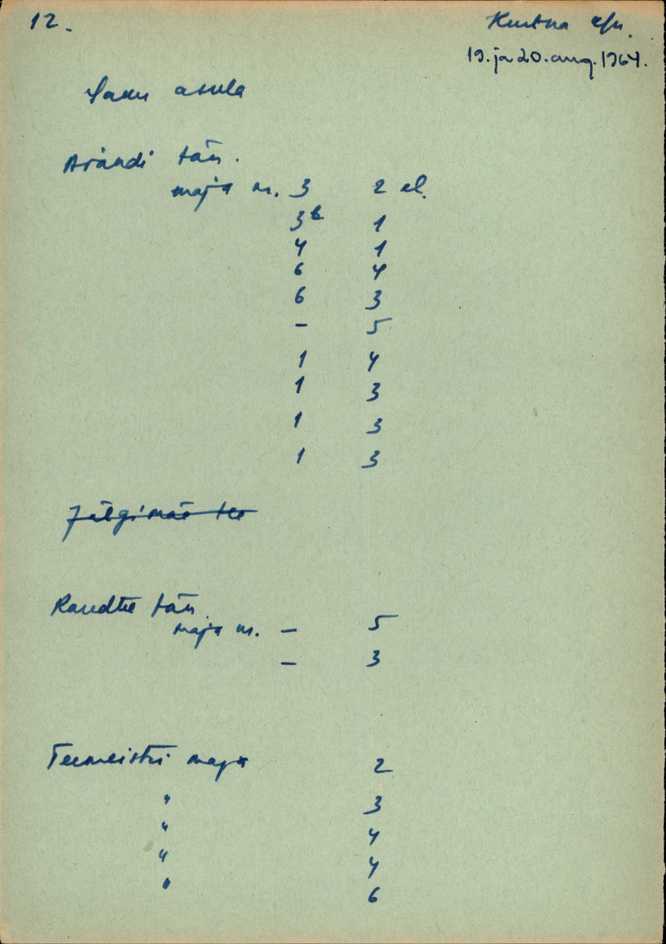 12.
Kurtna
19. ja 20. aug. 1964.
Saku asula
tän.
maja nr. 3 2 el.
3b 1
4 1
6 4
6 3
- 5
1 4
1 3
1 3
1 3
Jälgimäe tee
Raudtee tän.
maja nr. - 5
- 3
Teemeistri maja 2
" 3
" 4
" 4
" 6